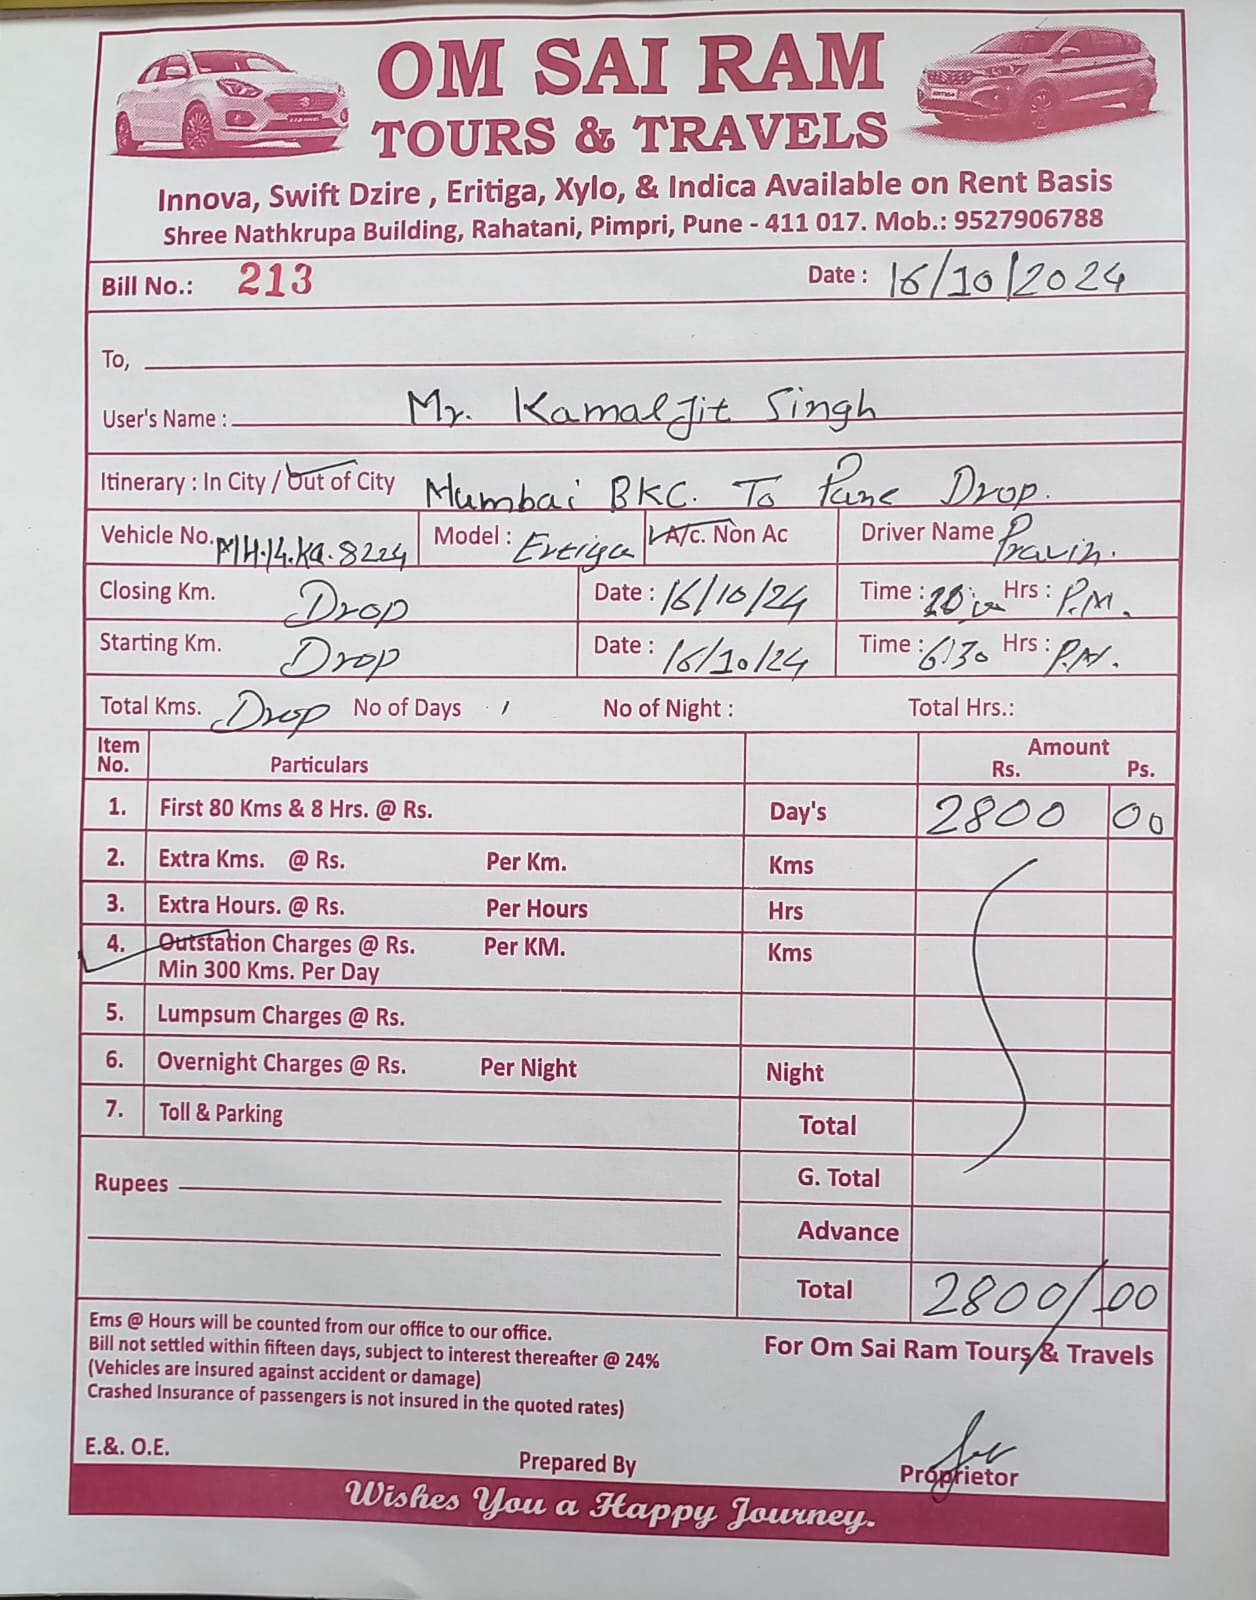 OM SAI RAM
TOURS & TRAVELS
Innova, Swift Dzire , Eritiga, Xylo, & Indica Available on Rent Basis
Shree Nathkrupa Building, Rahatani, Pimpri, Pune - 411 017. Mob.: 9527906788
Bill No.: 213 Date : 16/10/2024
To,
User's Name : Mr. Kamaljit Singh
Itinerary : In City / Out of City Mumbai BKC. To Pune Drop.
Vehicle No. MH.14.KQ.8224 Model : Ertiga A/c. Non Ac Driver Name Pravin.
Closing Km. Drop Date : 16/10/24 Time : Hrs : P.M.
Starting Km. Drop Date : 16/10/24 Time : 6:30 Hrs : P.M.
Total Kms. Drop No of Days 1 No of Night : Total Hrs.:
Item No. Particulars Amount Rs. Ps.
1. First 80 Kms & 8 Hrs. @ Rs. Day's 2800 00
2. Extra Kms. @ Rs. Per Km. Kms
3. Extra Hours. @ Rs. Per Hours Hrs
4. Outstation Charges @ Rs. Per KM. Kms
Min 300 Kms. Per Day
5. Lumpsum Charges @ Rs.
6. Overnight Charges @ Rs. Per Night Night
7. Toll & Parking Total
Rupees G. Total
Advance
Total 2800/.00
Ems @ Hours will be counted from our office to our office.
Bill not settled within fifteen days, subject to interest thereafter @ 24%
(Vehicles are insured against accident or damage)
Crashed Insurance of passengers is not insured in the quoted rates)
For Om Sai Ram Tours & Travels
E.&. O.E. Prepared By Proprietor
Wishes You a Happy Journey.